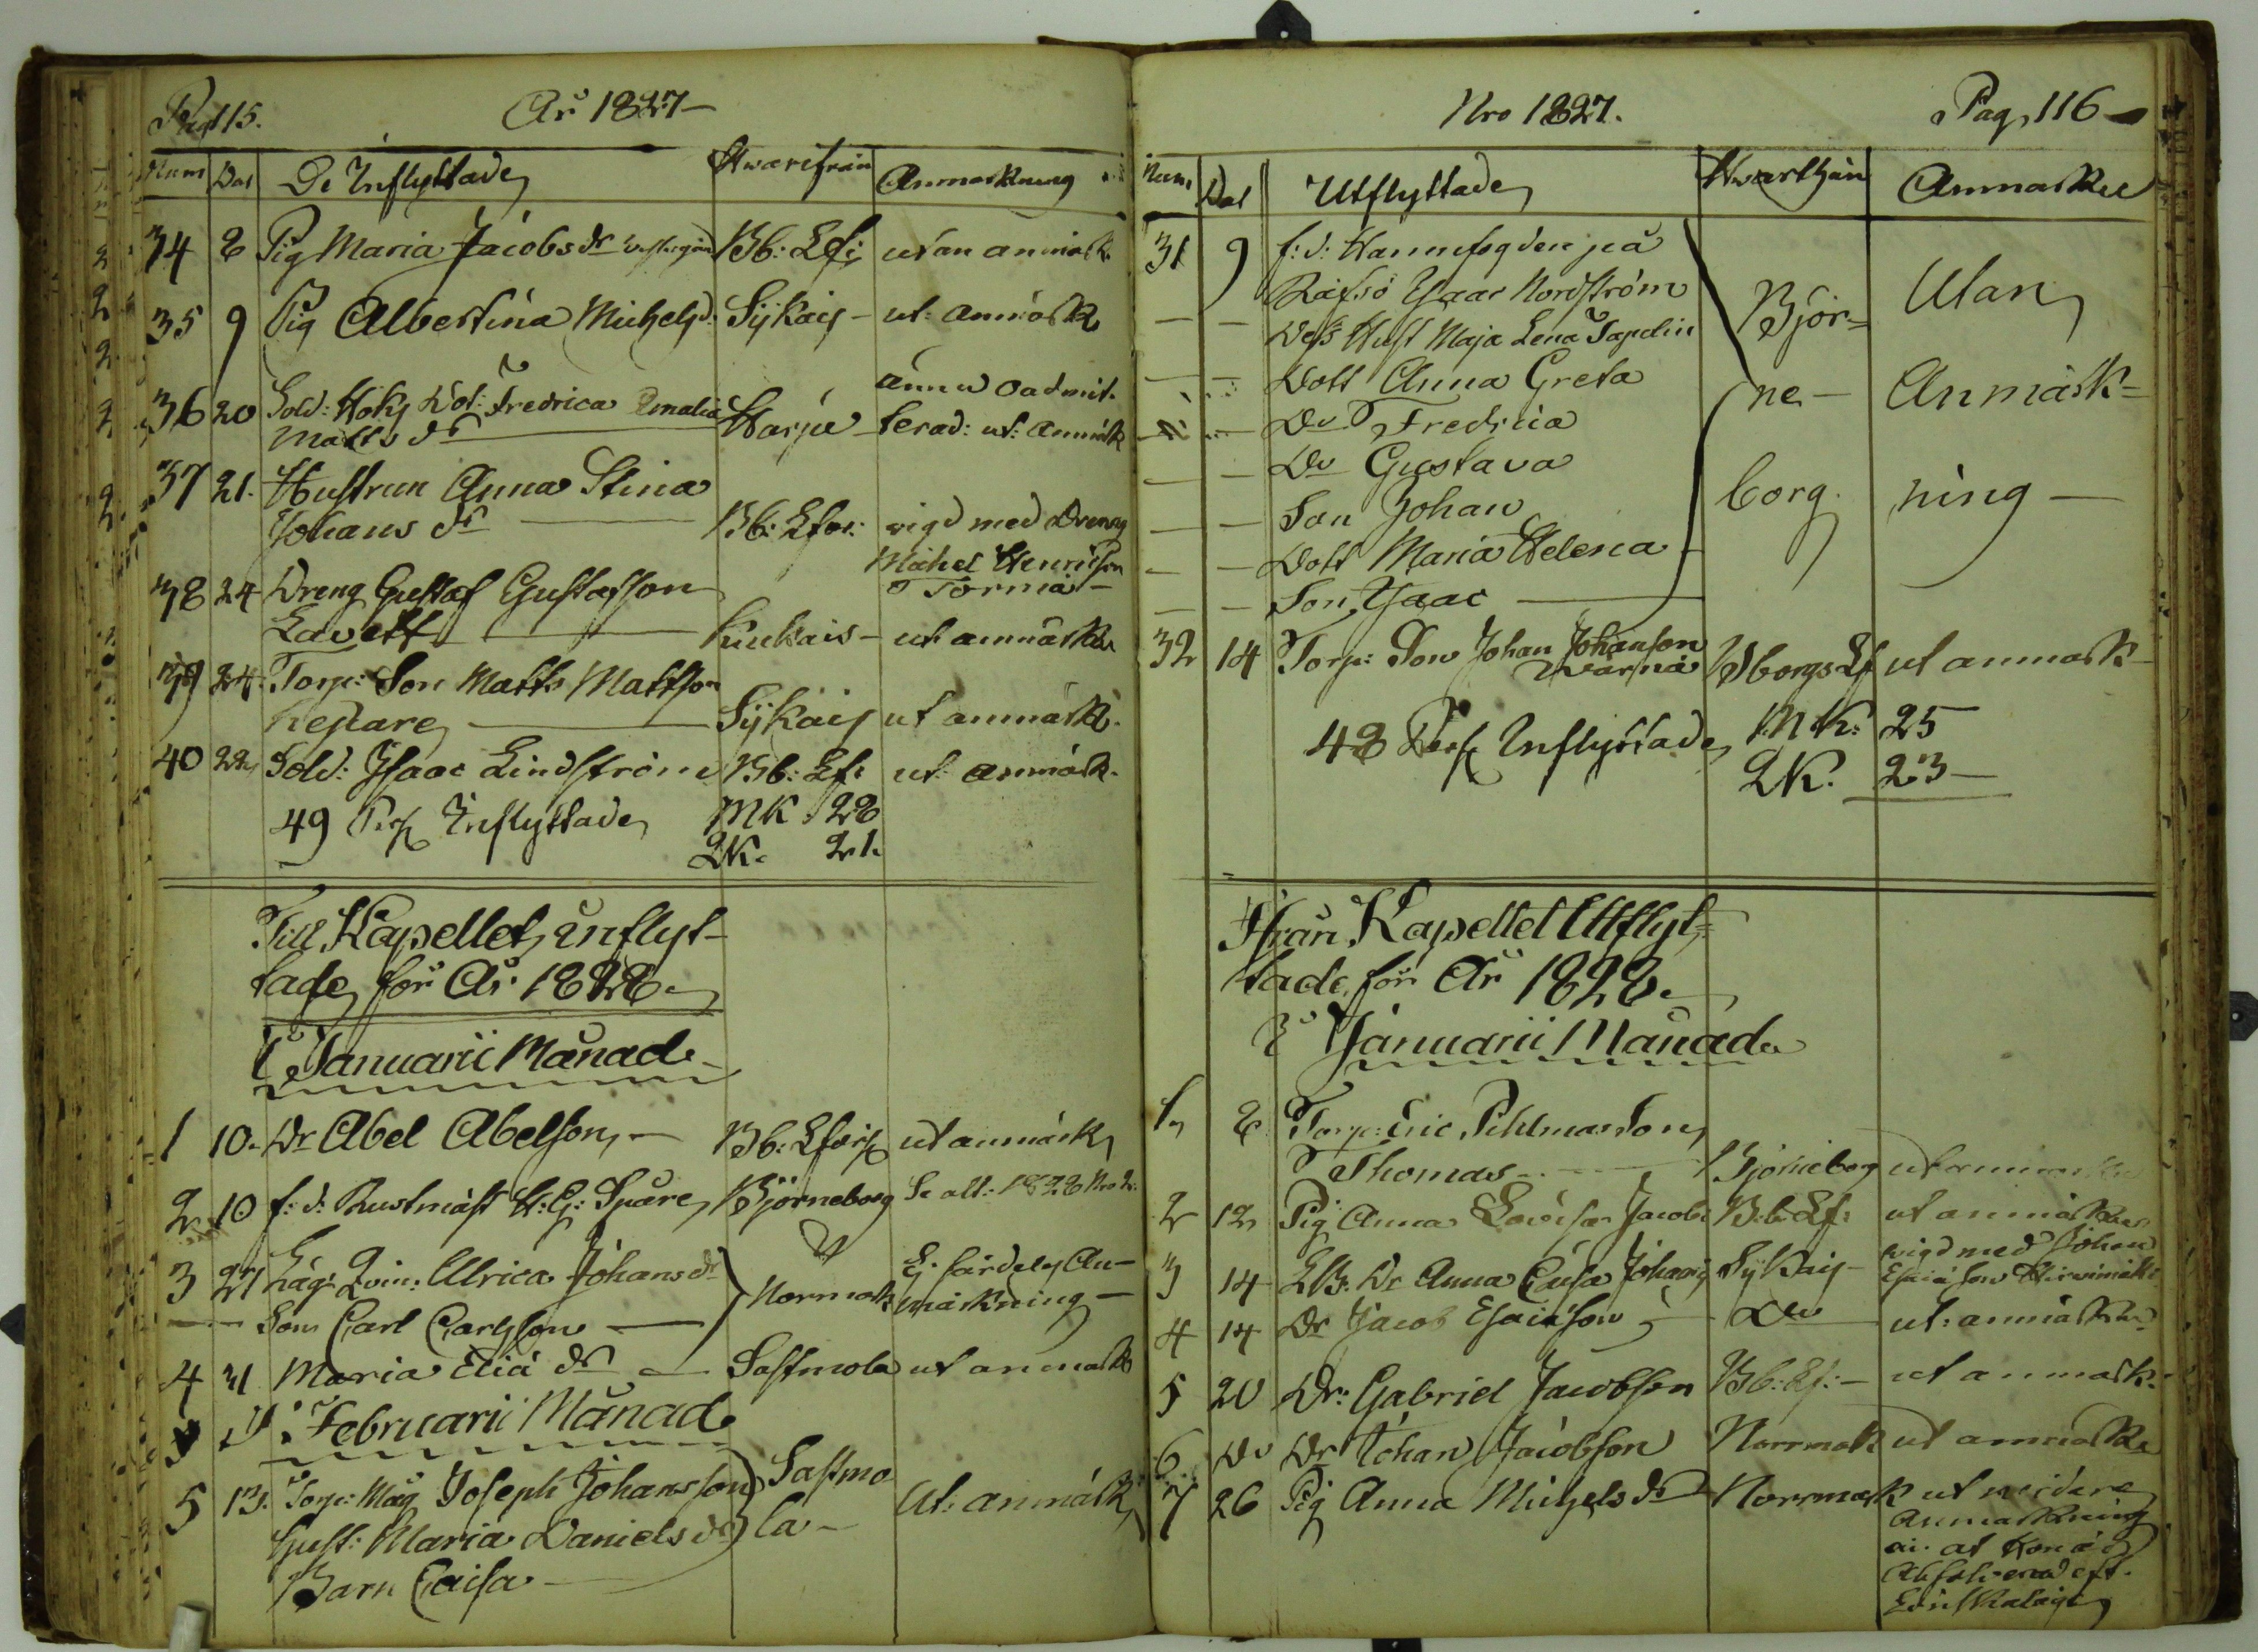 Pag 115.
År 1827
Num Dat De Inflyttade Hvarifrån Anmärkning
34 8 Pig Maria Jacobs dr Bb: Lf: utan anmärk
35 9 Pig Albertina Michels d: utan anmärk
36 20 Sold: Dot: Fredrica Amalia
Matts dr
ännu oadmit-
terad: ut: anmärk
37 21. Hustrun Anna Stina
Johans dr Bb: Lfor: vigd med Dreng
Michel Henricson
Tormä
38 24 Dreng Gustaf Gustafsson
Lavett Kuukais ut anmärk
39 24. Torp: Son Matts Mattson
ut anmärk.
40 22 Sold: Isaac Lindström Bb: Lf: ut: anmärk.
49 Pers Inflyttade MK 28
QK. 21.
Till Kapellet inflyt-
tade för År 1828.
I Januarii Månad
1 10. Dr Abel Abelson, Bb: ut anmärk
2 10 f: d: Rustmäst H: G: Spåre Björneborg Se att: 1828 Nro 2.
3 27 Lägs Qvin: Ulrica Johans dr Norrmark Ej särdeles An-
märkning
Son Carl Carlsson
4 31 Maria Eliä dr Sastmola ut anmärk
I Februarii Månad
5 13. Torp: Måg Joseph Johansson Sastmo
la ut: anmärk
hust: Maria Daniels dr
Barn Caisa
Nro 1827. Pag. 116
Num Dat Utflyttade Hvarthän Anmärk
31 9 f: d: Hamnfogden på
Räfsö Isaac Nordström
Dess Hust Maja Lena Tapelin
Dott Anna Greta
Do Fredrica
Do Gustava
Son Johan
Dott Maria Helena
Son Isaac
Björ=
ne-
borg.
Utan
Anmärk=
ning
32 14 Torp: Son Johan Johanson
Warna Bborgs Lf ut anmärk
48 Pers Inflyttade MK: 25
QK. 23
Ifrån Kapellet Utflyt=
tade för År 1828.
I Januarii Månad
1 8 Torp: Eric Pihlmas Son
Thomas Björneborg ut anmärk
2 12 Pig Anna Lovisa Jacobs B:b: Lf: ut anmärk
3 14 Dr Anna Caisa Johans vigd med Johan
Esaiäson
4 14 Dr Jacob Esaiäson Do ut: anmärk
5 20 Dr: Gabriel Jacobson Bb: Lf: ut anmärk.
6 Do Dr Johan Jacobson Norrmark ut anmärk
7 26 Pig Anna Michels dr Norrmark ut vidare
Anmärkning
än at Hon är
Absolverad eft.